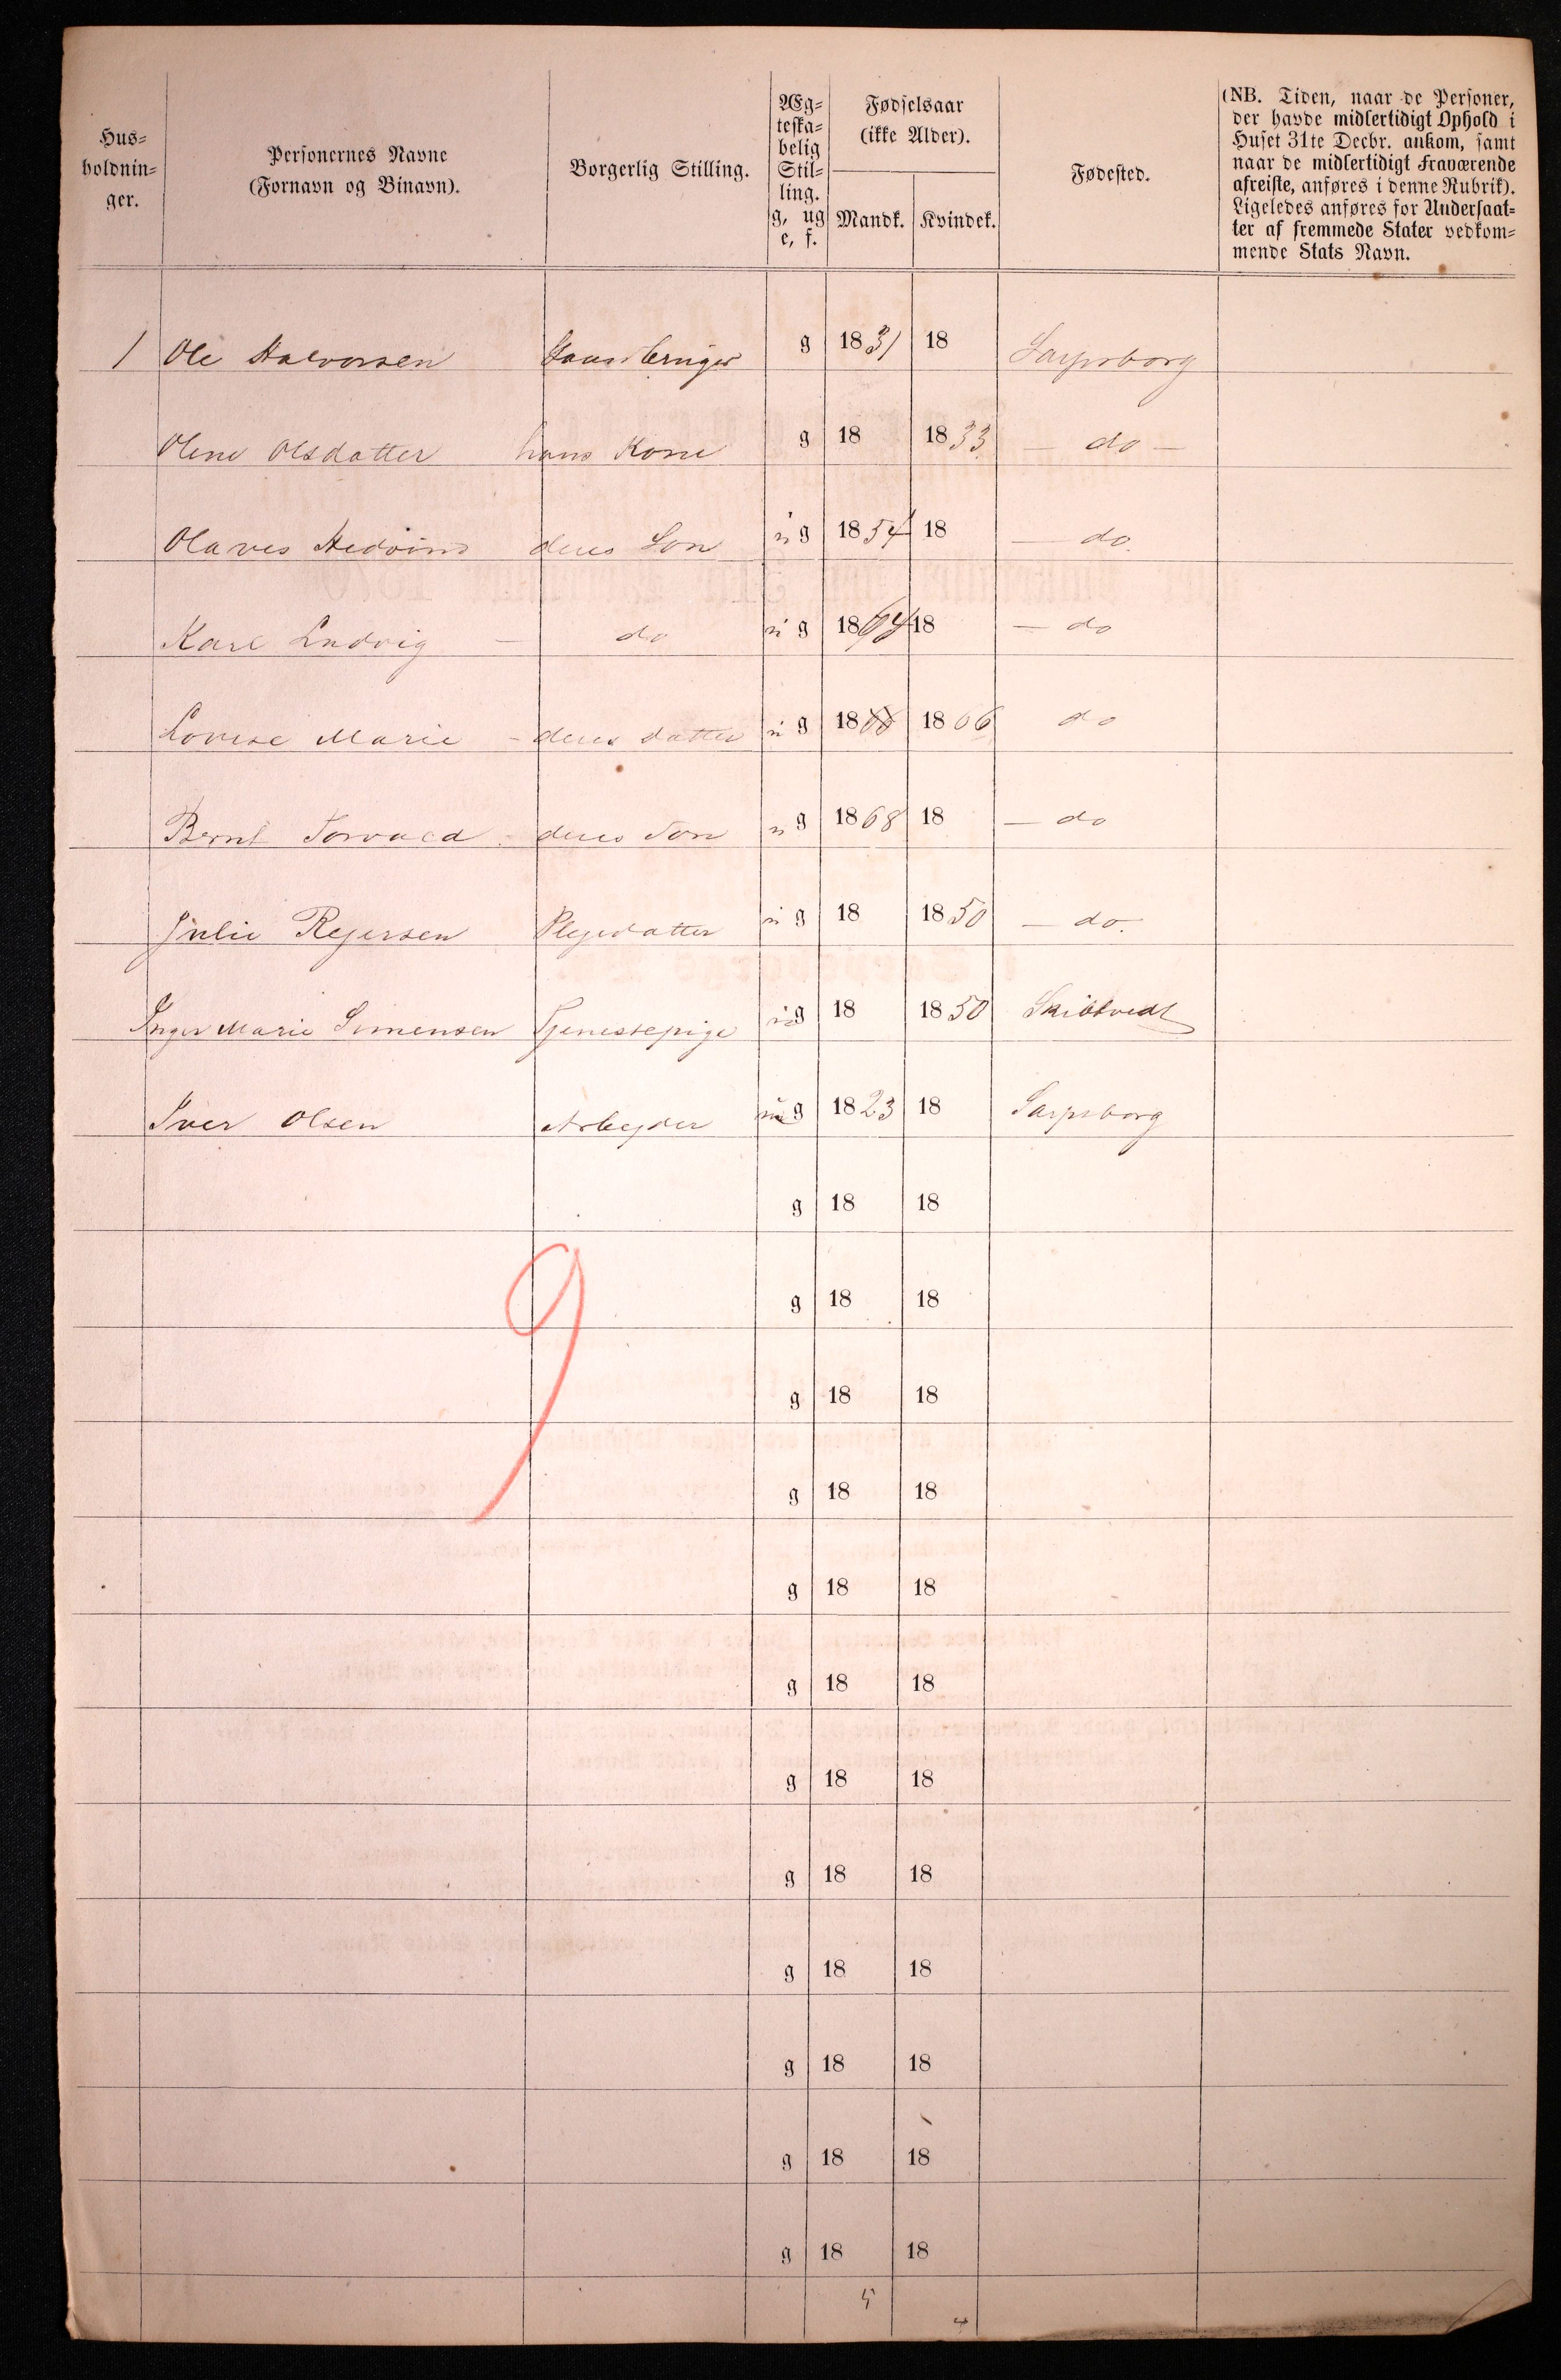 Hus-
holdnin-
ger.
Personernes Navne
(Fornavn og Binavn).
Borgerlig Stilling.
Æg-
teska-
belig
Stil-
ling.
g, ug
e, f.
Fødselsaar
(ikke Alder).
Mandk. Kvindek.
Fødested.
(NB. Tiden, naar de Personer,
der havde midlertidigt Ophold i
Huset 31te Decbr. ankom, samt
naar de midlertidigt Fraværende
afreiste, anføres i denne Rubrik).
Ligeledes anføres for Undersaat-
ter af fremmede Stater vedkom-
mende Stats Navn.
1 Ole Halvorsen g 1831 18 Sarpsborg
Oline Olsdatter hans Kone g 18 1833 — do —
Olaves Hedvin deres Son u g 1854 18 — do.
Karl Ludvig — do u g 1864 18 — do
Lovise Marie - deres datter u g 18 1866 do
Bernt Torvald deres Son u g 1868 18 — do
Julie Rejersen Plejedatter u g 18 1850 — do.
Inger Marie Simensen Tjenestepige u g 18 1850 Skibtvedt
Iver Olsen Arbejder u g 1823 18 Sarpsborg
g 18 18
g 18 18
g 18 18
g 18 18
g 18 18
g 18 18
g 18 18
g 18 18
g 18 18
g 18 18
g 18 18
g 18 18
9
5
4